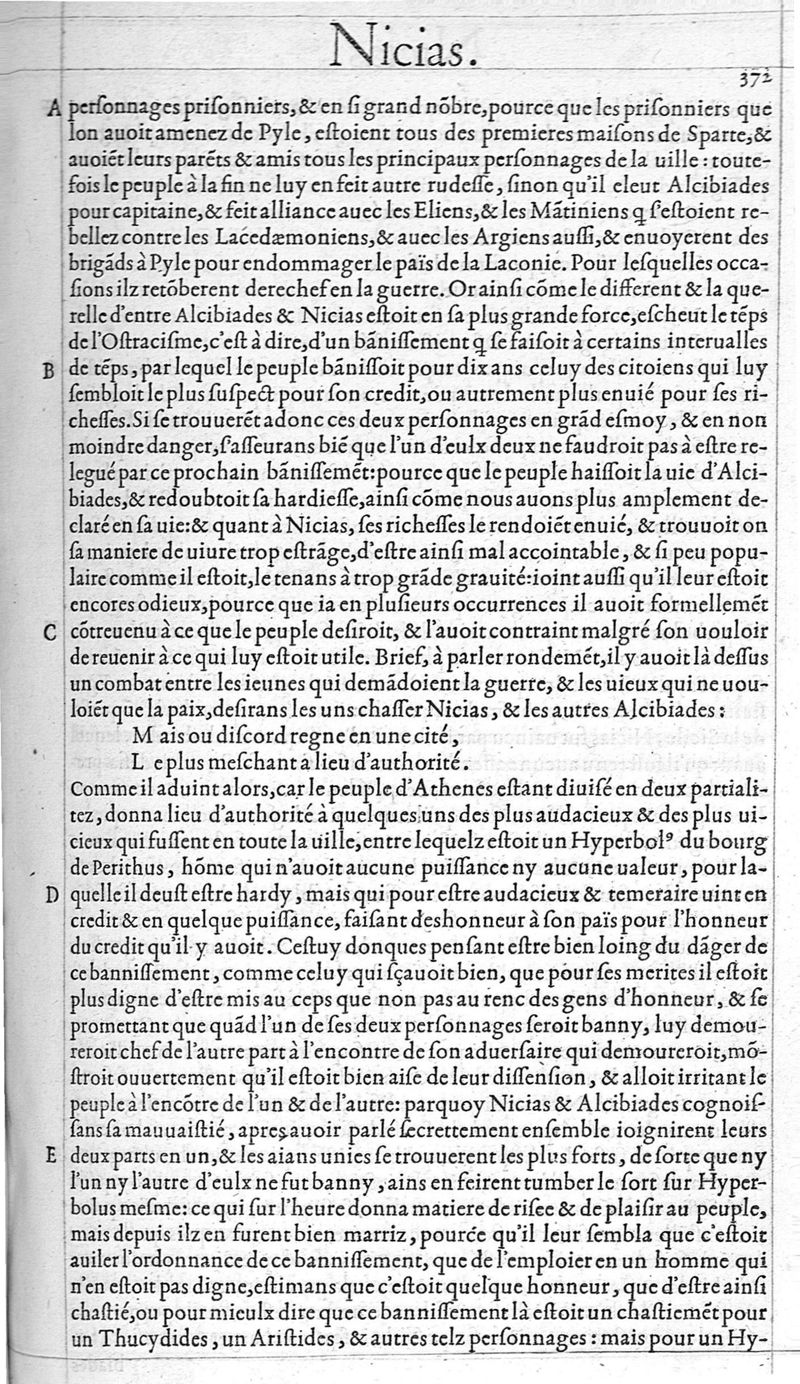 Nicias.
372
A perſonnages priſonniers, & en ſi grand nõbre, pource que les priſonniers que
lon auoit amenez de Pyle, eſtoient tous des premieres maiſons de Sparte, &
auoiẽt leurs parẽts & amis tous les principaux perſonnages de la uille: toute-
fois le peuple à la fin ne luy en feit autre rudeſſe, ſinon qu'il eleut Alcibiades
pour capitaine, & feit alliance auec les Eliens, & les Mãtiniens q̃ s'eſtoient re-
bellez contre les Lacedæmoniens, & auec les Argiens auſſi, & enuoyerent des
brigãds à Pyle pour endommager le païs de la Laconie. Pour leſquelles occa-
ſions ilz retõberent derechef en la guerre. Or ainſi cõme le different & la que-
relle d'entre Alcibiades & Nicias eſtoit en ſa plus grande force, eſcheut le tẽps
de l'Oſtraciſme, c'eſt à dire, d'un bãniſſement q̃ ſe faiſoit à certains interualles
B de tẽps, par lequel le peuple bãniſſoit pour dix ans celuy des citoiens qui luy
ſembloit le plus ſuſpect pour ſon credit, ou autrement plus enuié pour ſes ri-
cheſſes. Si ſe trouuerẽt adonc ces deux perſonnages en grãd eſmoy, & en non
moindre danger, s'aſſeurans biẽ que l'un d'eulx deux ne faudroit pas à eſtre re-
legué par ce prochain bãniſſemẽt: pource que le peuple haiſſoit la uie d'Alci-
biades, & redoubtoit ſa hardieſſe, ainſi cõme nous auons plus amplement de-
claré en ſa uie: & quant à Nicias, ſes richeſſes le rendoiẽt enuié, & trouuoit on
ſa maniere de uiure trop eſtrãge, d'eſtre ainſi mal accointable, & ſi peu popu-
laire comme il eſtoit, le tenans à trop grãde grauité: ioint auſſi qu'il leur eſtoit
encores odieux, pource que ia en pluſieurs occurrences il auoit formellemẽt
C cõtreuenu à ce que le peuple deſiroit, & l'auoit contraint malgré ſon uouloir
de reuenir à ce qui luy eſtoit utile. Brief, à parler rondemẽt, il y auoit là deſſus
un combat entre les ieunes qui demãdoient la guerre, & les uieux qui ne uou-
loiẽt que la paix, deſirans les uns chaſſer Nicias, & les autres Alcibiades:
M ais ou diſcord regne en une cité,
L e plus meſchant a lieu d'authorité.
Comme il aduint alors, car le peuple d'Athenes eſtant diuiſé en deux partiali-
tez, donna lieu d'authorité à quelques uns des plus audacieux & des plus ui-
cieux qui fuſſent en toute la uille, entre lequelz eſtoit un Hyperbolꝰ du bourg
de Perithus, hõme qui n'auoit aucune puiſſance ny aucune ualeur, pour la-
D quelle il deuſt eſtre hardy, mais qui pour eſtre audacieux & temeraire uint en
credit & en quelque puiſſance, faiſant deshonneur à ſon païs pour l'honneur
du credit qu'il y auoit. Ceſtuy donques penſant eſtre bien loing du dãger de
ce banniſſement, comme celuy qui ſçauoit bien, que pour ſes merites il eſtoit
plus digne d'eſtre mis au ceps que non pas au renc des gens d'honneur, & ſe
promettant que quãd l'un de ſes deux perſonnages ſeroit banny, luy demou-
reroit chef de l'autre part à l'encontre de ſon aduerſaire qui demoureroit, mõ-
ſtroit ouuertement qu'il eſtoit bien aiſe de leur diſſenſion, & alloit irritant le
peuple à l'encõtre de l'un & de l'autre: parquoy Nicias & Alcibiades cognoiſ-
ſans ſa mauuaiſtié, apres auoir parlé ſecrettement enſemble ioignirent leurs
E deux parts en un, & les aians unies ſe trouuerent les plus forts, de ſorte que ny
l'un ny l'autre d'eulx ne fut banny, ains en feirent tumber le ſort ſur Hyper-
bolus meſme: ce qui ſur l'heure donna matiere de riſee & de plaiſir au peuple,
mais depuis ilz en furent bien marriz, pource qu'il leur ſembla que c'eſtoit
auiler l'ordonnance de ce banniſſement, que de l'emploier en un homme qui
n'en eſtoit pas digne, eſtimans que c'eſtoit quelque honneur, que d'eſtre ainſi
chaſtié, ou pour mieulx dire que ce banniſſement là eſtoit un chaſtiemẽt pour
un Thucydides, un Ariſtides, & autres telz perſonnages: mais pour un Hy-